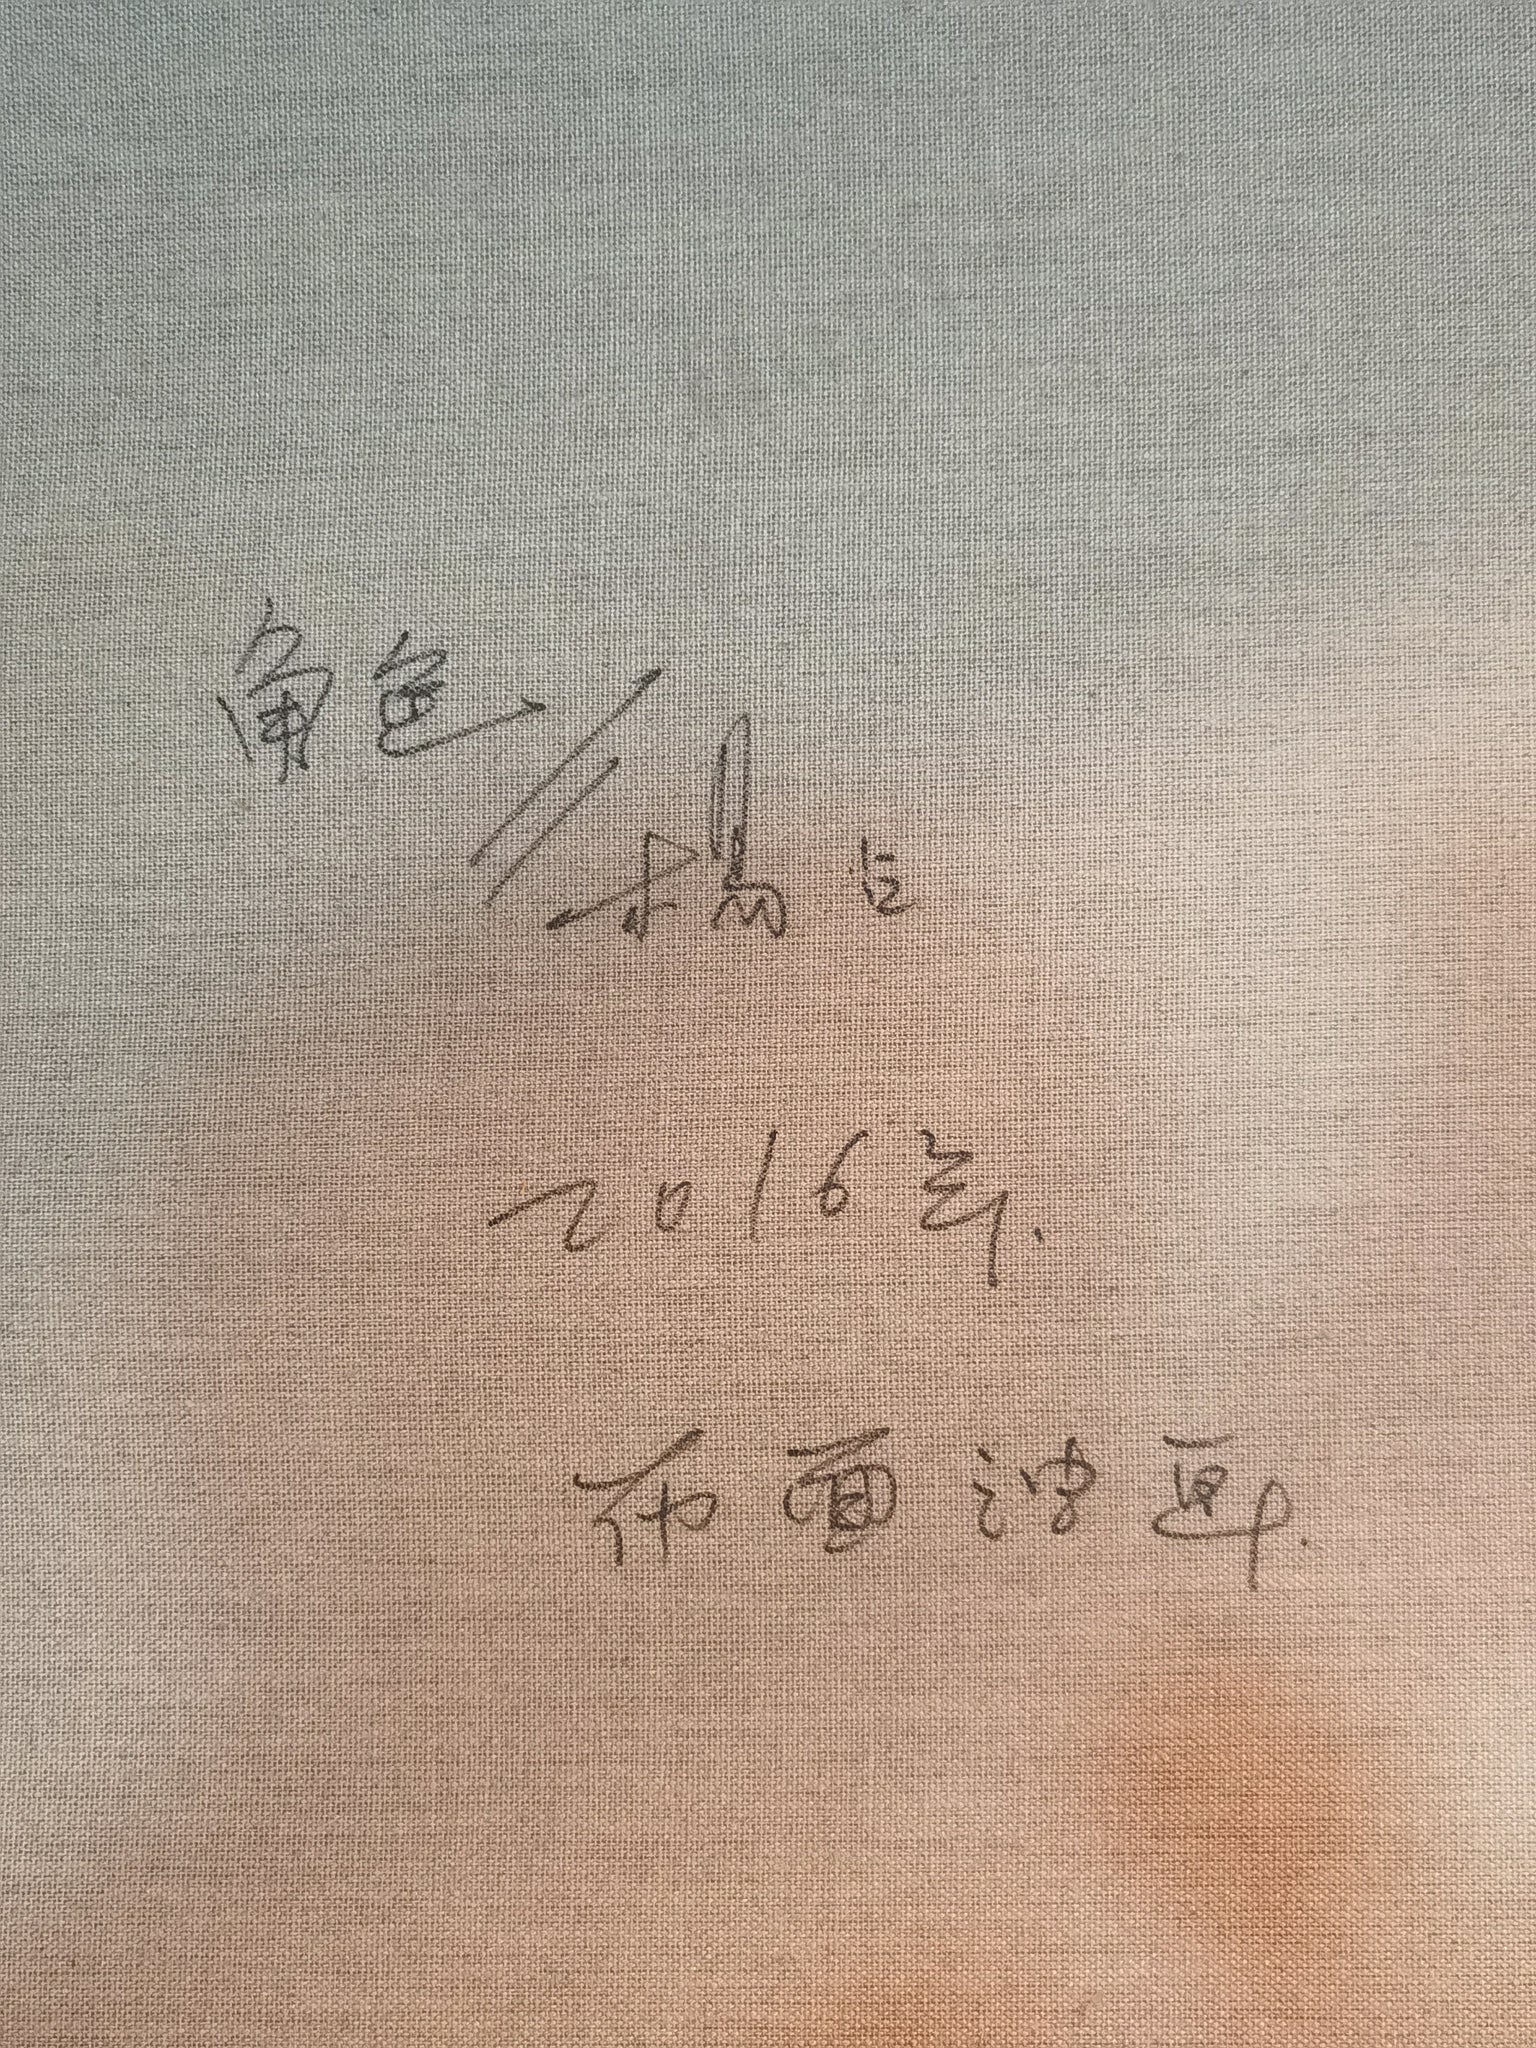 角色//
2016年.
布面油画.